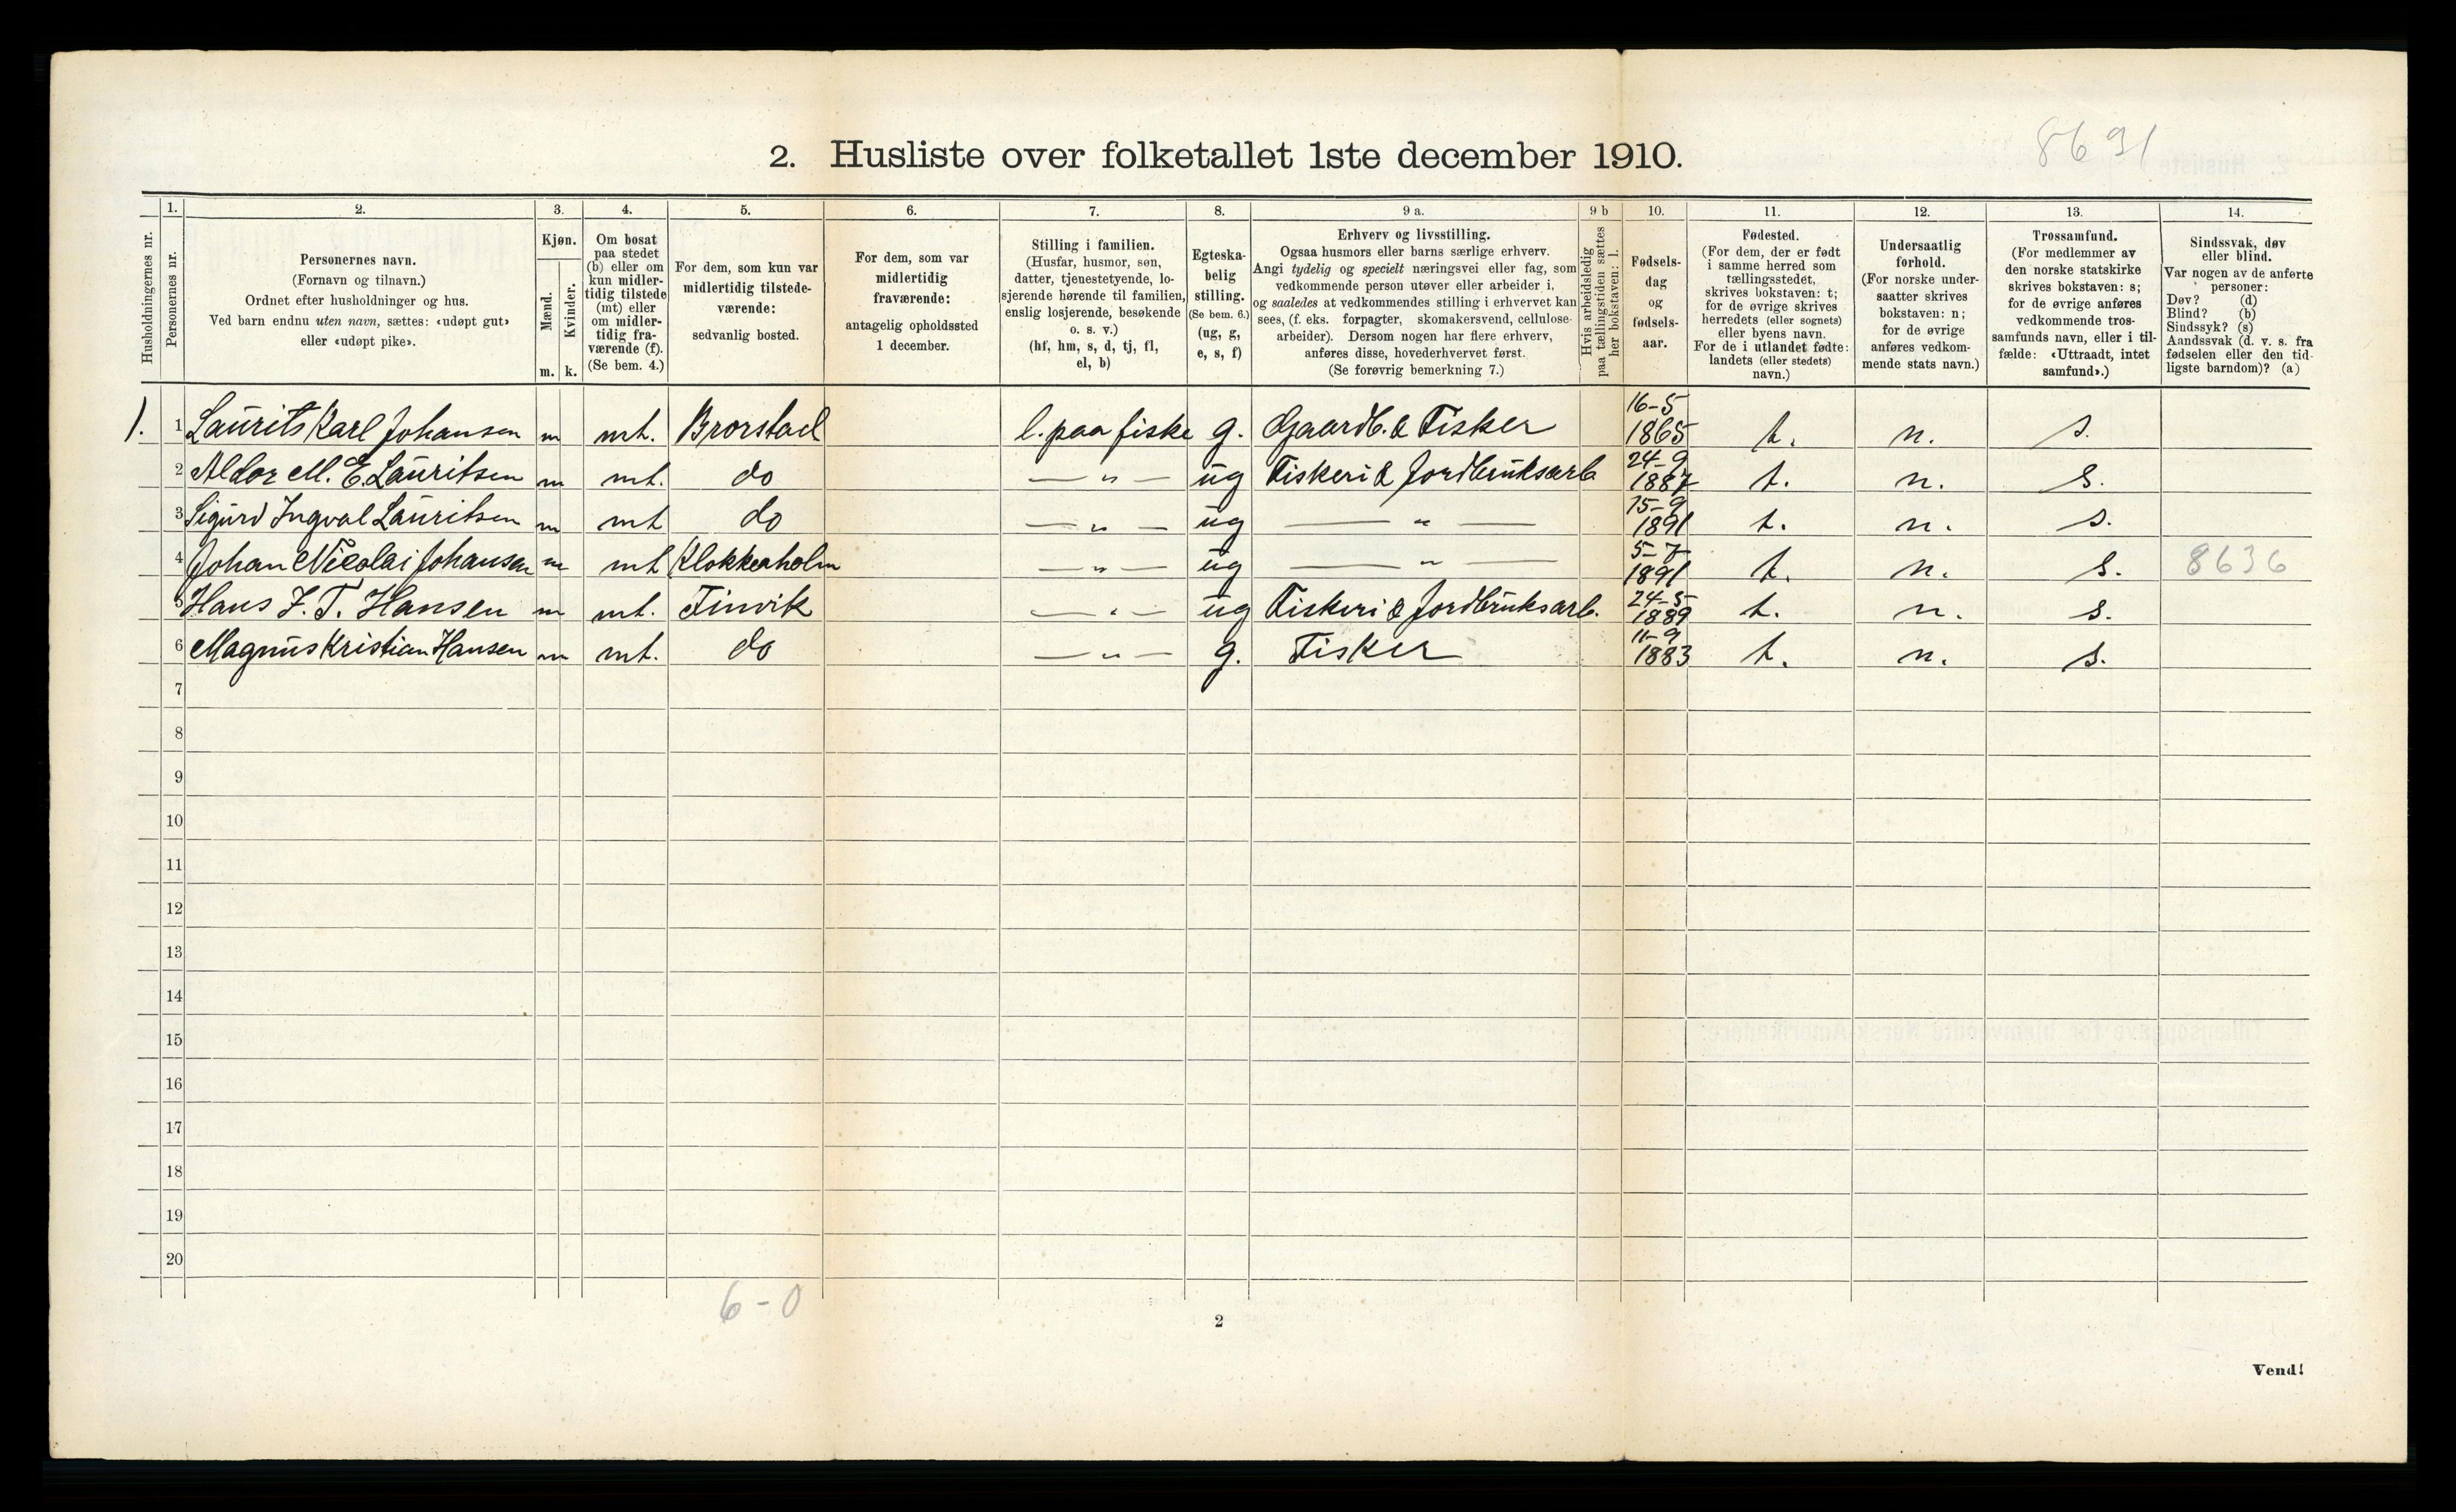 8691
2. Husliste over folketallet 1ste december 1910.
Husholdningernes nr.
1.
Personernes nr.
2.
Personernes navn.
(Fornavn og tilnavn.)
Ordnet efter husholdninger og hus.
Ved barn endnu uten navn, sættes: «udøpt gut»
eller «udøpt pike».
3.
Kjøn.
Mænd.
Kvinder.
m. k.
4.
Om bosat
paa stedet
(b) eller om
kun midler-
tidig tilstede
(mt) eller
om midler-
tidig fra-
værende (f).
(Se bem. 4.)
5.
For dem, som kun var
midlertidig tilstede-
værende:
sedvanlig bosted.
6.
For dem, som var
midlertidig
fraværende:
antagelig opholdssted
1 december.
7.
Stilling i familien.
(Husfar, husmor, søn,
datter, tjenestetyende, lo-
sjerende hørende til familien,
enslig losjerende, besøkende
o. s. v.)
(hf, hm, s, d, tj, fl,
el, b)
8.
Egteska-
belig
stilling.
(Se bem. 6.)
(ug, g,
e, s, f)
9 a.
Erhverv og livsstilling.
Ogsaa husmors eller barns særlige erhverv.
Angi tydelig og specielt næringsvei eller fag, som
vedkommende person utøver eller arbeider i,
og saaledes at vedkommendes stilling i erhvervet kan
sees, (f. eks. forpagter, skomakersvend, cellulose-
arbeider). Dersom nogen har flere erhverv,
anføres disse, hovederhvervet først.
(Se forøvrig bemerkning 7.)
9 b
Hvis arbeidsledig
paa tællingstiden sættes
her bokstaven: l.
10.
Fødsels-
dag
og
fødsels-
aar.
11.
Fødested.
(For dem, der er født
i samme herred som
tællingsstedet,
skrives bokstaven: t;
for de øvrige skrives
herredets (eller sognets)
eller byens navn.
For de i utlandet fødte:
landets (eller stedets)
navn.)
12.
Undersaatlig
forhold.
(For norske under-
saatter skrives
bokstaven: n;
for de øvrige
anføres vedkom-
mende stats navn.)
13.
Trossamfund.
(For medlemmer av
den norske statskirke
skrives bokstaven: s;
for de øvrige anføres
vedkommende tros-
samfunds navn, eller i til-
fælde: «Uttraadt, intet
samfund».)
14.
Sindssvak, døv
eller blind.
Var nogen av de anførte
personer:
Døv? (d)
Blind? (b)
Sindssyk? (s)
Aandssvak (d. v. s. fra
fødselen eller den tid-
ligste barndom)? (a)
1. 1 Laurits Karl Johansen m mt. Brorstad l. paa fiske g. Gaardb. & Fisker 16-5 1865 t. n. s.
2 Aldor M. E. Lauritsen m mt. do — " — ug Fiskeri & Jordbruksarb 24-9 1887 t. n. s.
3 Sigurd Ingval Lauritsen m mt do — " — ug — " — 15-9 1891 t. n. s.
4 Johan Nicolai Johansen m mt Klokkerholm — " — ug — " — 5-7 1891 t. n. s. 8636
5 Hans J. T. Hansen m mt. Finvik — " — ug Fiskeri & Jordbruksarb. 24-5 1889 t. n. s.
6 Magnus Kristian Hansen m mt. do — " — g. Fisker 11-9 1883 t. n. s.
7
8
9
10
11
12
13
14
15
16
17
18
19
20
6-0
2
Vend!